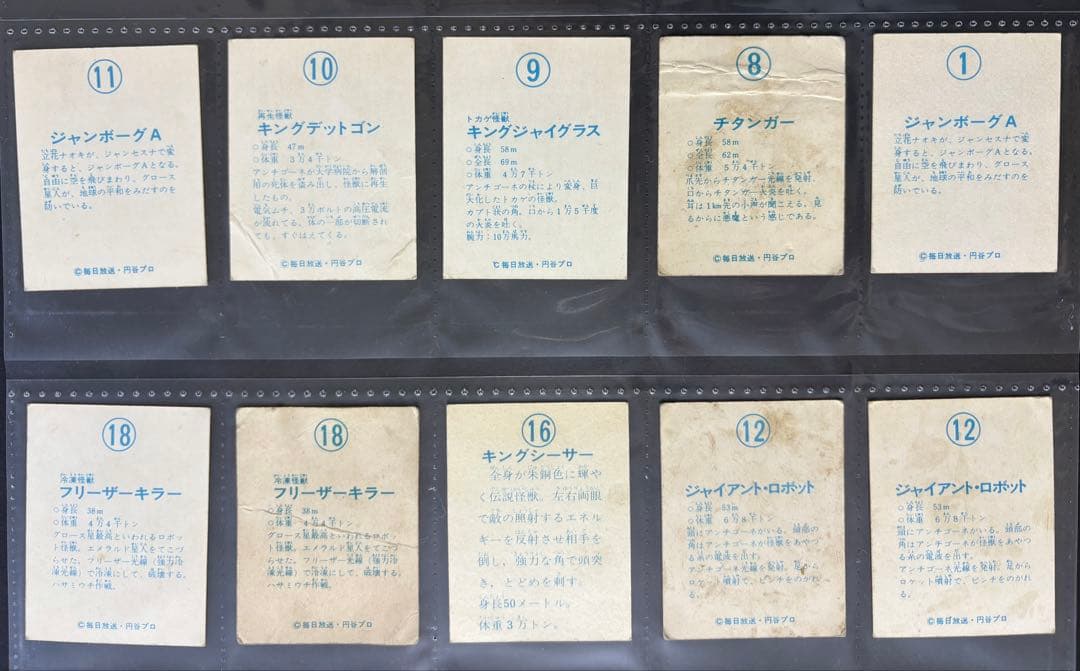 11
ジャンボーグA
立花ナオキが、ジャンセスナで変
身すると、ジャンボーグAとなる。
自由に空を飛びまわり、グロース
星人が、地球の平和をみだすのを
防いでいる。
©毎日放送・円谷プロ
10
再生怪獣
キングデットゴン
○身長 47m
○体重 3万4千トン
アンチゴーネが大学病院から解剖
用の死体を盗み出し、怪獣に再生
したもの。
電気ムチ、3万ボルトの高圧電流
が流れてる、体の一部が切断され
ても、すぐはえてくる。
©毎日放送・円谷プロ
9
トカゲ怪獣
キングジャイグラス
○身長 58m
○全長 69m
○体重 4万7千トン
アンチゴーネの杖により変身、巨
大化したトカゲの怪獣。
カブト状の角、口から1万5千度
の火炎を吐く。
腕力:10万馬力。
©毎日放送・円谷プロ
8
チタンガー
○身長 58m
○全長 62m
○体重 5万4千トン
爪先からチタンガー光線を発射、
口からチタンガー火炎を吐く。
耳は1km先の小声が聞こえる、見
るからに悪魔という感じである。
©毎日放送・円谷プロ
1
ジャンボーグA
立花ナオキが、ジャンセスナで変
身すると、ジャンボーグAとなる。
自由に空を飛びまわり、グロース
星人が、地球の平和をみだすのを
防いでいる。
©毎日放送・円谷プロ
18
冷凍怪獣
フリーザーキラー
○身長 38m
○体重 4万4千トン
グロース星最高といわれるロボッ
ト怪獣。エメラルド星人をてこづ
らせた。フリーザー光線(強力冷
凍光線)で冷凍にして、破壊する。
ハサミウチ作戦。
©毎日放送・円谷プロ
18
冷凍怪獣
フリーザーキラー
○身長 38m
○体重 4万4千トン
グロース星最高といわれるロボッ
ト怪獣。エメラルド星人をてこづ
らせた。フリーザー光線(強力冷
凍光線)で冷凍にして、破壊する。
ハサミウチ作戦。
©毎日放送・円谷プロ
16
キングシーサー
全身が朱銅色に輝や
く伝説怪獣。左右両眼
で敵の照射するエネル
ギーを反射させ相手を
倒し、強力な角で頭突
き、とどめを刺す。
身長50メートル。
体重3万トン。
12
ジャイアント・ロボット
○身長 53m
○体重 6万8千トン
頭にアンチゴーネがいる。頭部の
角はアンチゴーネが怪獣をあやつ
る糸の電波を出す。
アンチゴーネ光線を発射。足から
ロケット噴射で、ピンチをのがれ
る。
©毎日放送・円谷プロ
12
ジャイアント・ロボット
○身長 53m
○体重 6万8千トン
頭にアンチゴーネがいる。頭部の
角はアンチゴーネが怪獣をあやつ
る糸の電波を出す。
アンチゴーネ光線を発射。足から
ロケット噴射で、ピンチをのがれ
る。
©毎日放送・円谷プロ